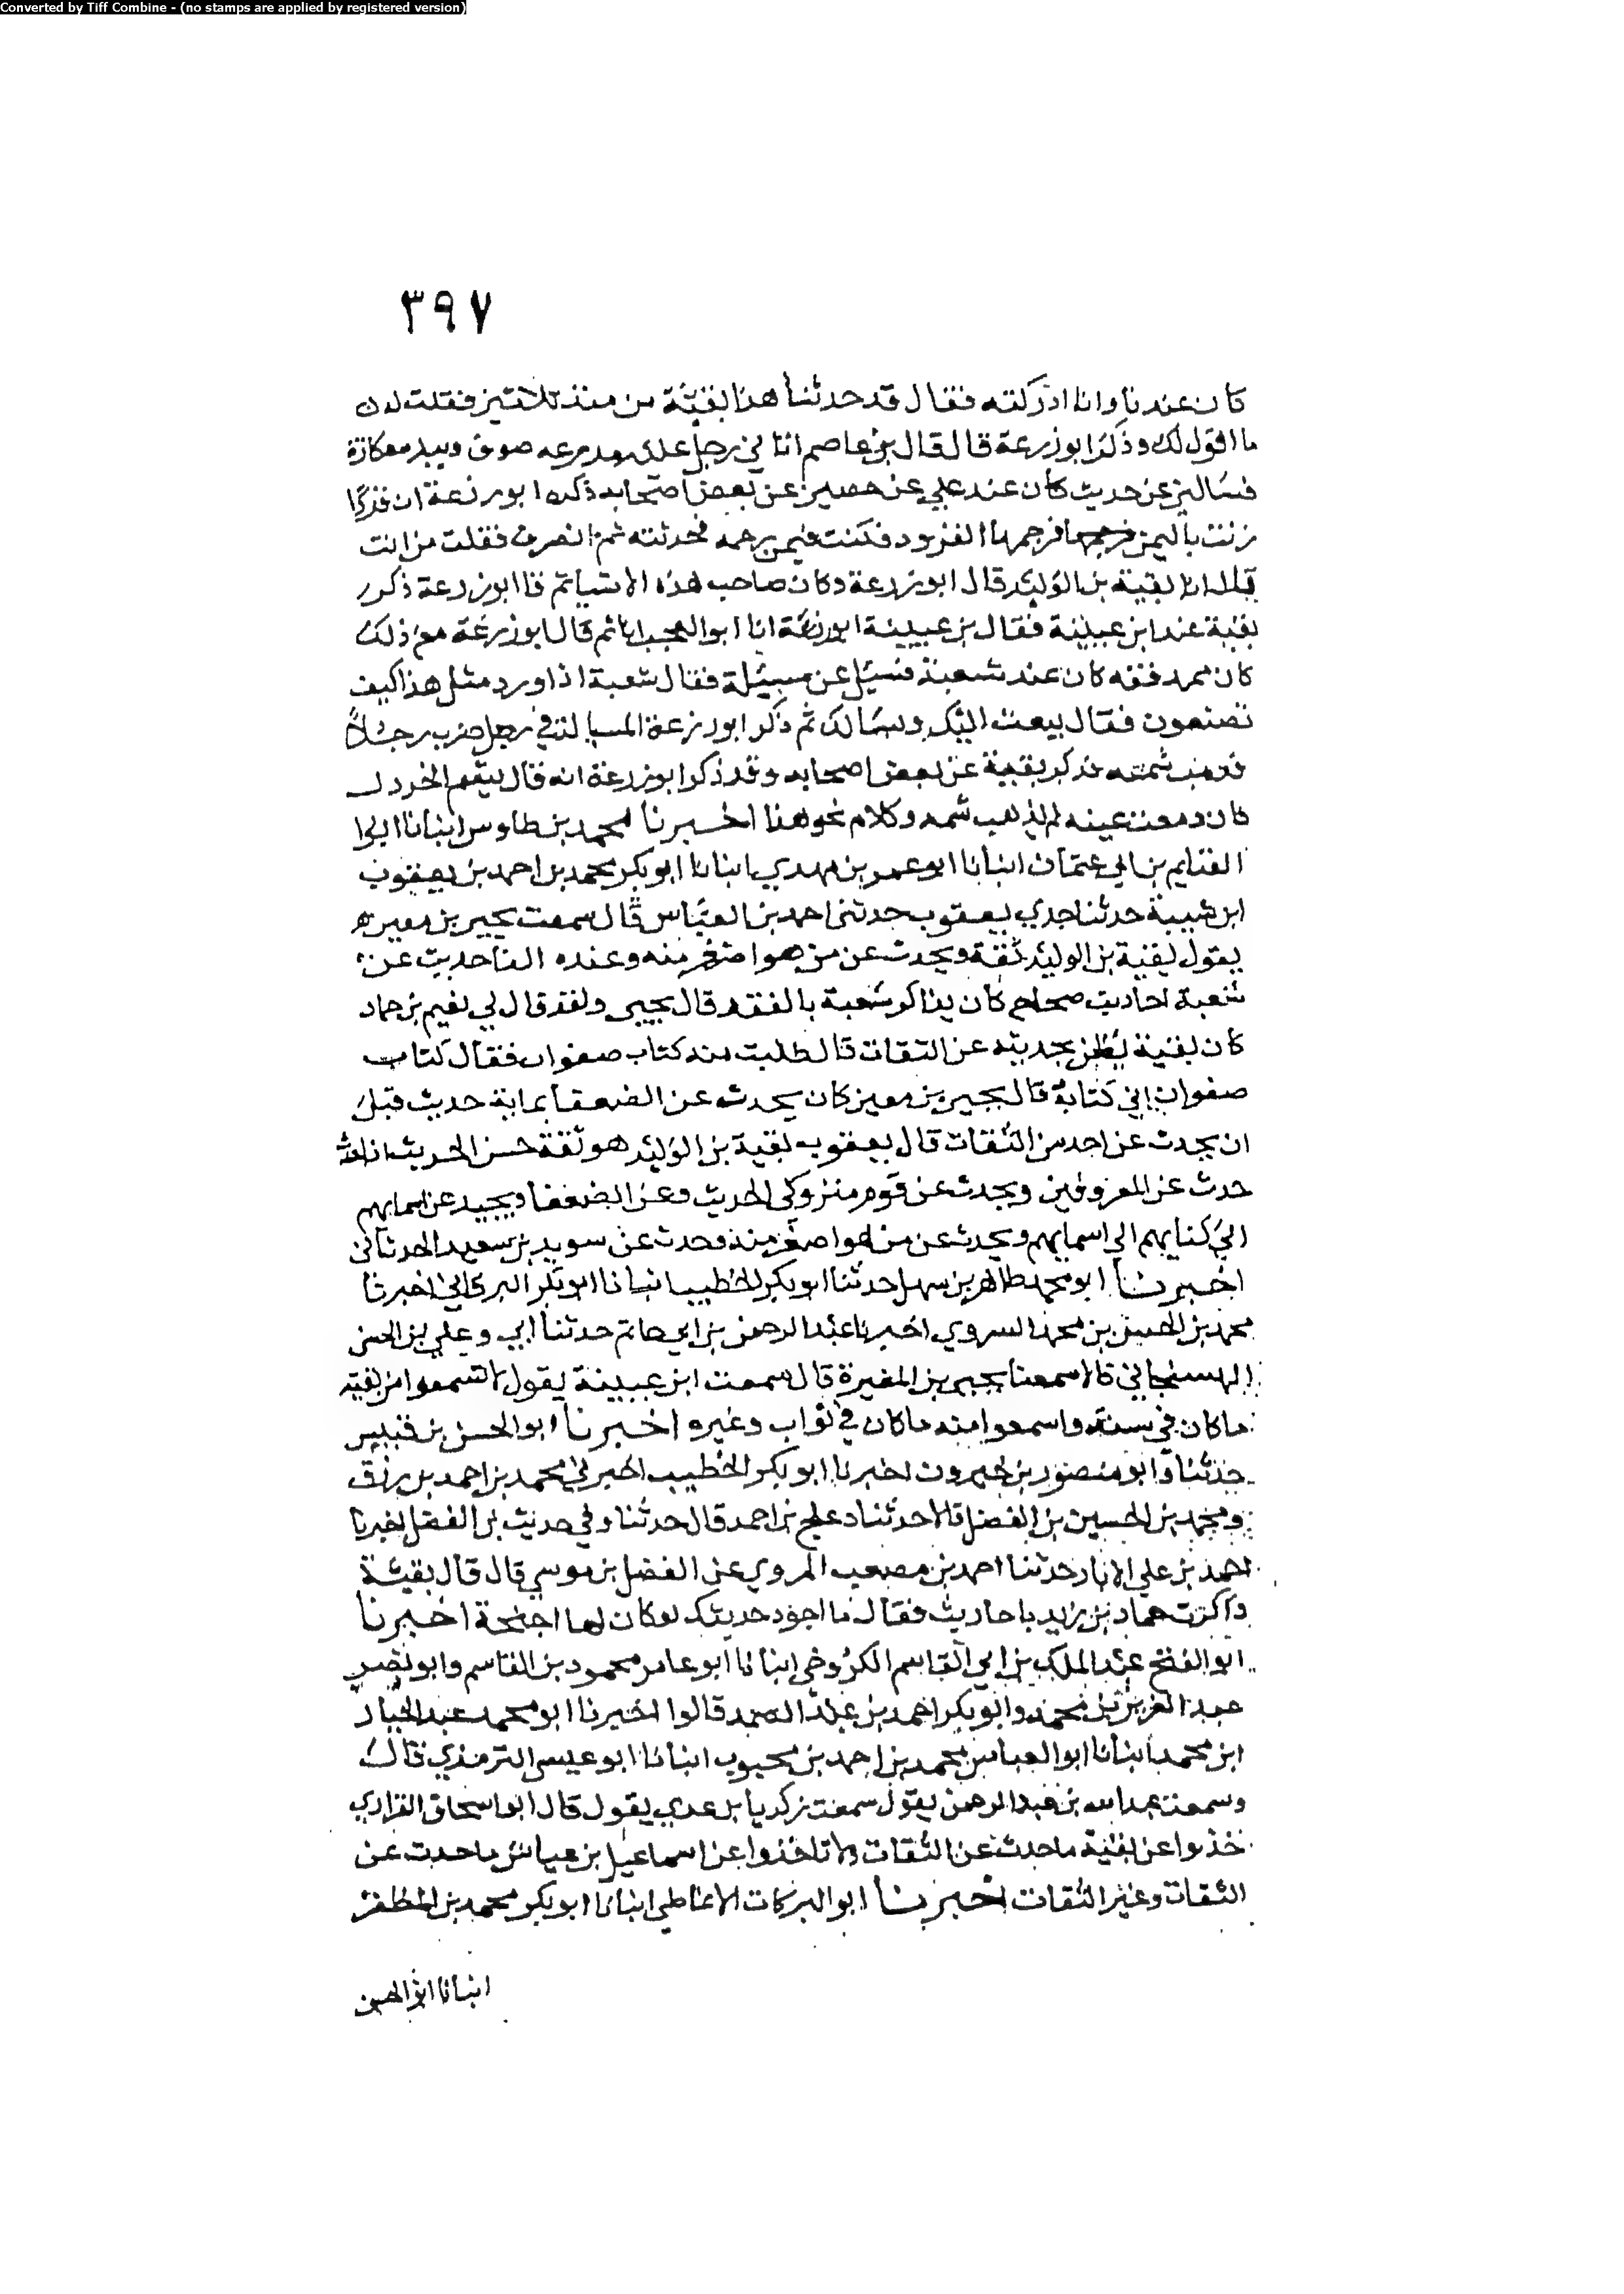 Converted by Tiff Combine - (no stamps are applied by registered version)
٣٩٧
كان عندنا وانا ادركته فقال قد حدثنا هذا بقية من منذ ثلاثين فقلت له
ما اقول لك وذكر ابو زرعة قال قال بن عاصم اتاني رجل عليه مدرعه صوف وبيده عكازة
فسالني عن حديث كان عند علي عن حصين عن بعض اصحابه ذكره ابو زرعة ان قردًا
زنت باليمن فرجمها القرود فكنت فيمن رجمه فحدثته ثم انصرف فقلت من انت
قال انا بقية بن الوليد قال ابو زرعة وكان صاحب هذه الاشيا ثم قا ابو زرعة ذكر
بقية عند ابن عيينة فقال بن عيينة انا ابو العجب انا ثم قال ابو زرعة مع ذلك
كان معه فقه كان عند شعبة فسيل عن مسيلة فقال شعبة اذا ورد مثل هذا كيف
تصنعون فقال يبعث اليك ونسالك ثم ذكر ابو زرعة المسيلة في رجل ضرب رجلاً
فذهب شمه فذكر بقية عن بعض اصحابه وقد ذكر ابو زرعة انه قال يشم الخردل
كان دمعت عينه لم يذهب شمه وكلام نحو هذا اخبرنا محمد بن طاوس انبانا ابوا
الغنايم بن ابي عثمان انبانا ابو عمر بن مهدي انبانا ابو بكر محمد بن احمد بن يعقوب
ابن شيبة حدثنا جدي يعقوب حدثني احمد بن العباس قال سمعت يحيى بن معين
يقول بقية بن الوليد ثقة ويحدث عن من هو اصغر منه وعنده الفا حديث عن
شعبة احاديث صحاح كان يذاكر شعبة بالفقه قال يحيى ولقد قال لي نعيم بن حماد
كان بقية يظن بحديثه عن الثقات قال طلبت منه كتاب صفوان فقال كتاب
صفوان اني كتابة قال يحيى بن معين كان يحدث عن الضعفا بماية حديث قبل
ان يحدث عن احد من الثقات قال يعقوب بقية بن الوليد هو ثقة حسن الحديث اذا
حدث عن المعروفين ويحدث عن قوم متروكي الحديث وعن الضعفا ويحيد عن اسمايهم
الي كنايهم الي اسمايهم ويحدث عن من هو اصغر منه وحدث عن سويد بن سعيد الحدثاني
اخبرنا ابو محمد طاهر بن سهل حدثنا ابو بكر الخطيب انبانا ابو بكر البرقاني اخبرنا
محمد بن الحسين بن محمد السروي اخبرنا عبد الرحمن بن ابي حاتم حدثنا ابي وعلي بن الحسن
الهسنجاني قالا سمعنا يحيى بن المغيرة قال سمعت ابن عيينة يقول لا تسمعوا من بقية
ما كان في سنة واسمعوا منه ما كان في ثواب وغيره اخبرنا ابو الحسن بن قبيس
حدثنا وابو منصور بن خيرون اخبرنا ابو بكر الخطيب اخبرني محمد بن احمد بن رزق
ومحمد بن الحسين بن الفضل قالا حدثنا دعلج بن احمد قال حدثنا وفي حديث بن الفضل اخبرنا
احمد بن علي الابار حدثنا احمد بن مصعب المروي عن الفضل بن موسي قال قال بقية
ذاكرت حماد بن زيد باحاديث فقال ما اجود حديثك لو كان لها اجنحة اخبرنا
ابو الفتح عبد الملك بن ابي القاسم الكروخي انبانا ابو عامر محمود بن القاسم وابو نصر
عبد العزيز بن محمد وابو بكر احمد بن عبد الصمد قالوا اخبرنا ابو محمد عبد الجبار
ابن محمد انبانا ابو العباس محمد بن احمد بن محبوب انبانا ابو عيسى الترمذي قال
وسمعت عبد الله بن عبد الرحمن يقول سمعت زكريا بن عدي يقول قال ابو اسحاق الفزاري
خذوا عن بقية ما حدث عن الثقات ولا تاخذوا عن اسماعيل بن عياش ما حدث عن
الثقات وغير الثقات اخبرنا ابو البركات الانماطي انبانا ابو بكر محمد بن المظفر
انبانا ابو الحسن